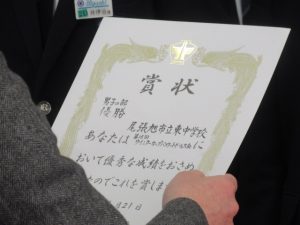 賞状
男子の部
優勝
尾張旭市立東中学校
あなたは
に
おいて優秀な成績をおさめ
たのでこれを賞しま
月21日